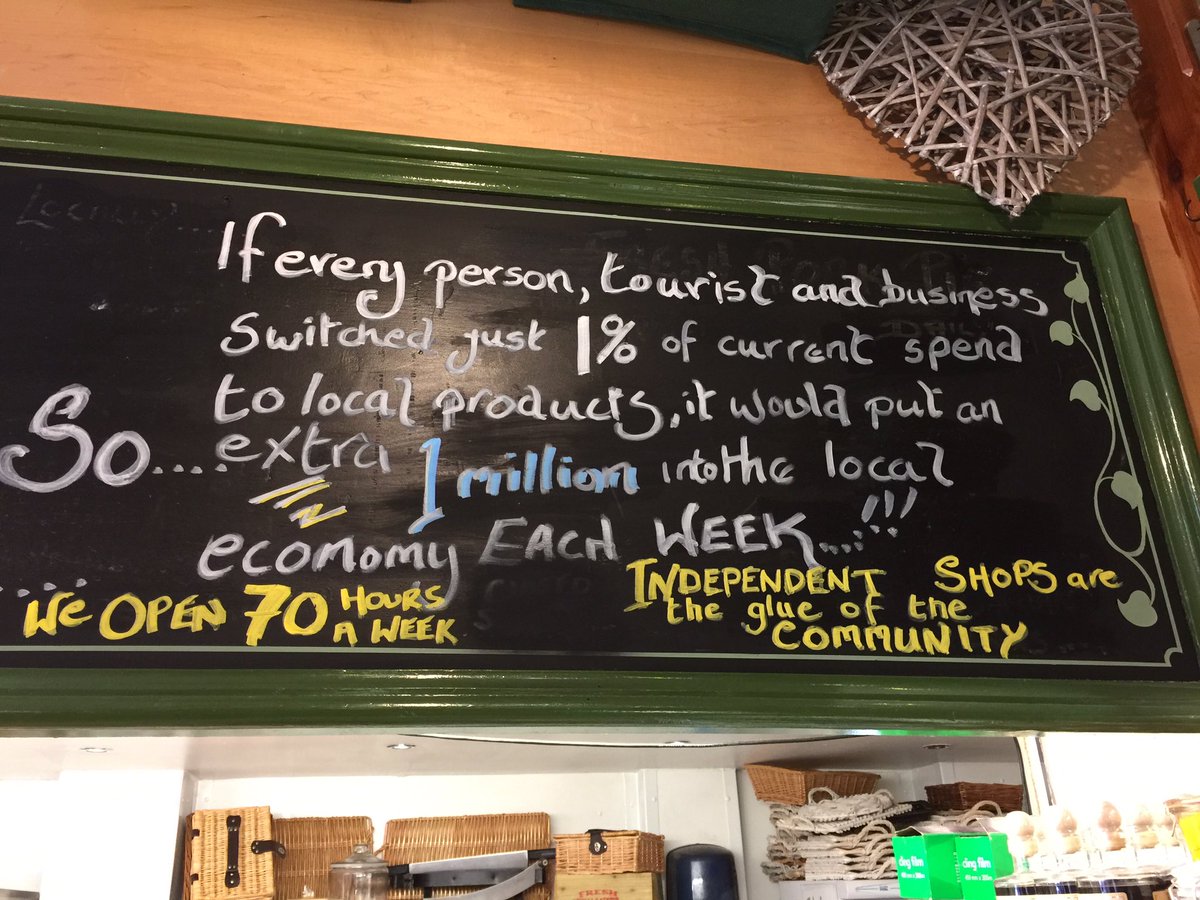 If every person, tourist and business
Switched just 1% of current spend
to local products, it would put an
So....extra 1 million into the local
economy EACH WEEK...!!!
We OPEN 70 HOURS A WEEK
INDEPENDENT SHOPS are
the glue of the
COMMUNITY
FRESH
cling film
cling film